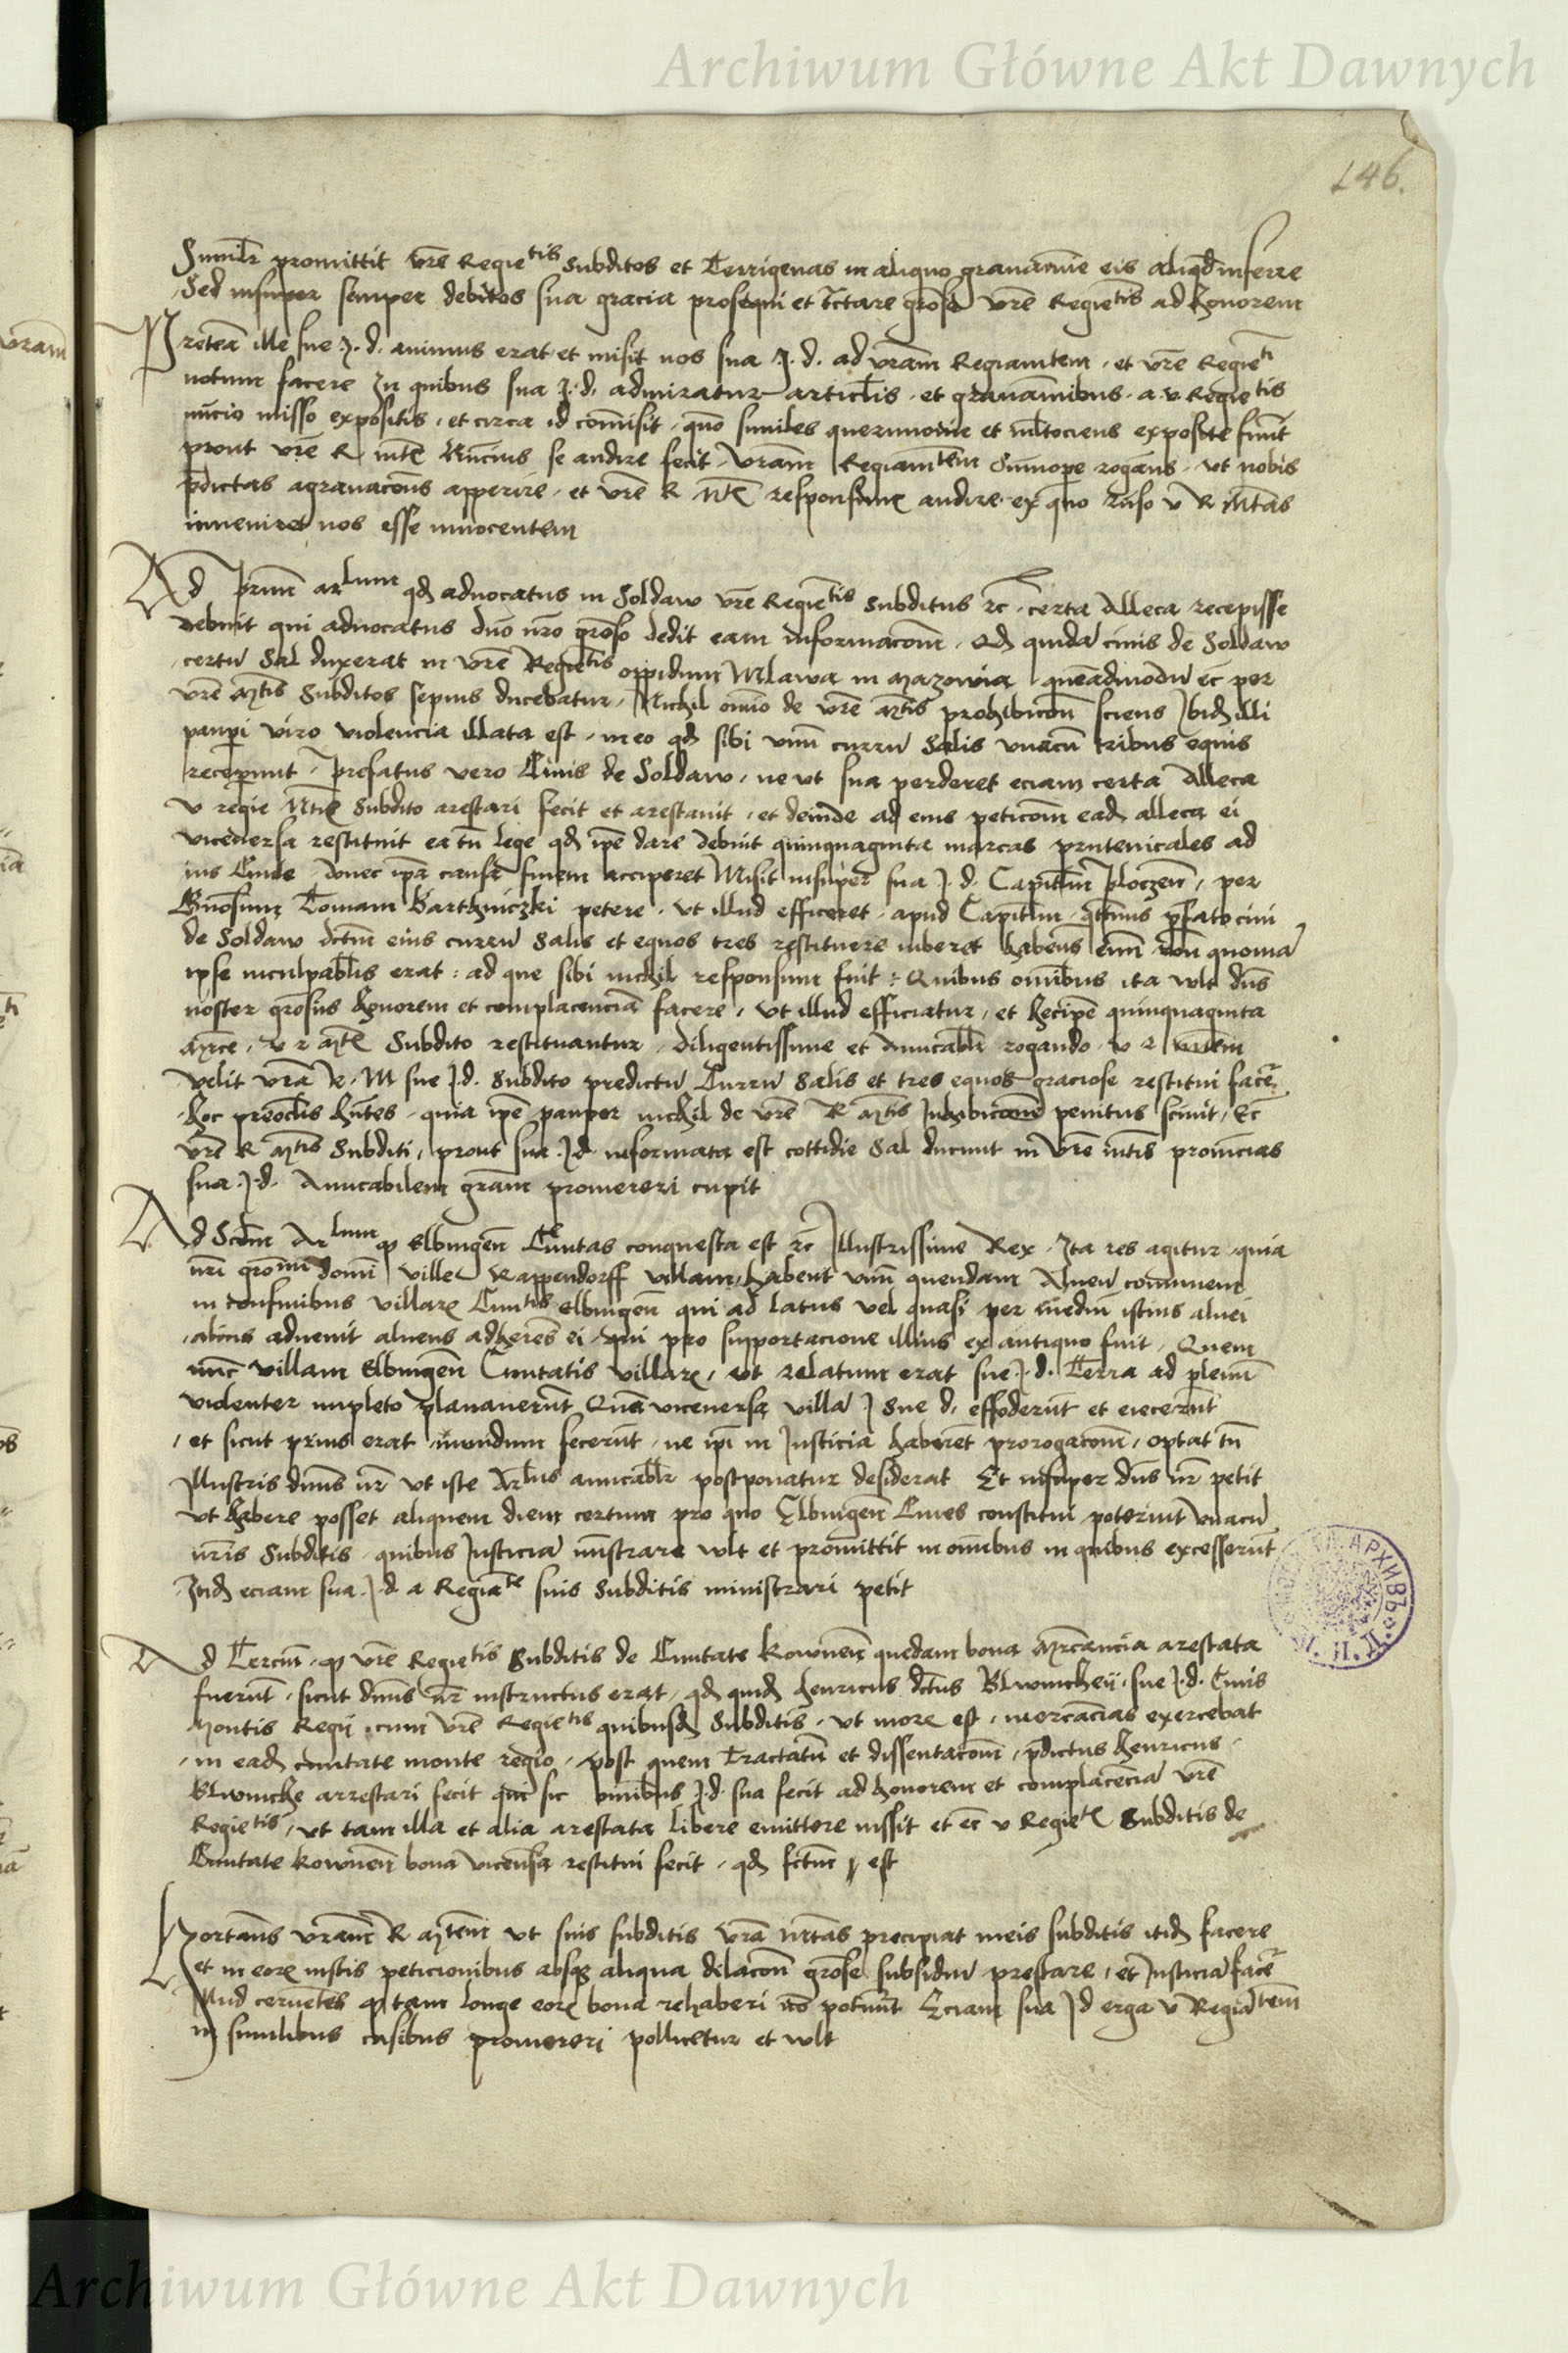 Archiwum Główne Akt Dawnych
146.
Similr promittit vre Regietis subditos et Terrigenas in aliquo gravamine eis aliqd inferre
Sed insuper semper debitos sua gracia prosequi et tctare grose vre Regietis ad honorem
Preterea ille sue J. d. animus erat et misit nos sua J. d. ad vram Regiamtem, et vre Regieti
notum facere In quibus sua J. d. admiratur articlis et gravaminibus a v Regietis
nuncio misso expositis, et circa id comisit, quo similes querimonie et mltociens exposite funt
prout vre R mte Nuncius se audire fecit, Vram Regiamtem Summope rogans, vt nobis
pdictas agravacons apperire, et vre R Mte responsum audire ex quo v R Mtas
inveniret nos esse innocentem
Ad Primu arlum qd advocatus in Soldaw vre Regietis subditus rc, certa Alleca recepisse
debuit qui advocatus dno nro groso dedit eam informaconem, Qd quida civis de Soldaw
certu Sal duxerat in vre Regietis oppidum Mlawa in Mazowia quemadmodu ec per
vre Mtis Subditos sepius ducebatur, Nichil omio de vre Mtis prohibicon sciens Ibid illi
paupi viro violencia illata est, in eo qd sibi vnu curru Salis vnacu tribus equis
receperunt, Prefatus vero Civis de Soldaw, ne vt sua perderet eciam certa Alleca
v regie Mtis subdito arestari fecit et arestavit, et deinde ad eius peticonem ead alleca ei
viceversa restituit ea tn lege qd ipe dare debuit quinquaginta marcas prutenicales ad
ius Civile donec ipa causa finem acciperet Misit insuper sua J. d. Capitm Ploczen, per
Gnosum Tomam Barthniczki petere, vt illud efficeret, apud Capitm, pfato civi
de Soldaw dctm eius curru Salis et equos tres restituere iuberet habens
ipse inculpablis erat: ad que sibi nichil responsum fuit: Quibus omibus ita wlt dns
noster grosus honorem et complacencia facere, vt illud efficiatur, et quinquaginta
Mrce, v r Mte Subdito restituantur, diligentissime et Amicabli rogando v R
velit vra R. M sue J. d. subdito predictu Curru Salis et tres equos graciose restitui face
hoc preoclis hntes, quia ipe pauper nichil de vre R Mtis Inhibicone penitus scivit, Ec
vre R Mtis Subditi, prout sua J. d. informata est cottidie Sal ducunt in vre mtis provincias
sua J. d. Amicabilem gram promereri cupit
Ad Scdm Arlum qp Elbingen Civitas conquesta est rc Illustrissime Rex, Ita res agitur quia
nri domi ville Rappendorff villam, habent vnu quendam Alveu communem
in confinibus villare Civitatis Elbingen qui ad latus vel quasi per mediu istius alvei
alius advenit alveus adherens ei, qui pro supportacione illius ex antiquo fuit, Quem
nunc villam Elbingen Civitatis villare, vt relatum erat sue J. d. Terra ad plenu
violenter impleto planaverut Qua viceversa villa J Sue d. effoderut et eiecerut
et sicut prius erat mundum fecerut, ne ipi in Justicia haberet prorogaconem, optat tn
Illustris dnus nr vt iste Arlus amicablr postponatur desiderat Et insuper dns nr petit
vt habere posset aliquem diem certum pro quo Elbingen Cives constitui poterint vnacu
nris Subditis quibus Justicia mistrare wlt et promittit in omibus in quibus excesserut
eciam sua J. d a Regiate suis subditis ministrari petit
Ad Terciu, qp vre Regietis Subditis de Civitate Kownen quedam bona Mrcancia arestata
fuerut, sicut dnus nr instructus erat, qd quid henricus dctus Blwmcheij, sue J. d. Civis
Montis Regij cum vre Regietis quibusd Subditis, vt more est, mercancias exercebat
in ead civitate monte regio, post quem Tractatu et dissentaconem, pdictus henricus
Blwmche arrestari fecit qui sic omibus J. d. sua fecit ad honorem et complacencia vre
Regietis, vt tam illa et alia arestata libere emittere iussit et ec v Regiete Subditis de
Civitate Kownen bona vicevsa restitui fecit, qd fctum est
Hortans vram R Mtem vt suis subditis vra Mtas precipiat meis subditis itid facere
et in eore iustis peticionibus absq aliqua dilacon grose subsidiu prestare, et Justicia face
Illud cernetes qp tam longe eore bona rehaberi no potuerut Eciam sua J d erga v Regiatem
in similibus casibus promereri pollicetur et wlt
Archiwum Główne Akt Dawnych